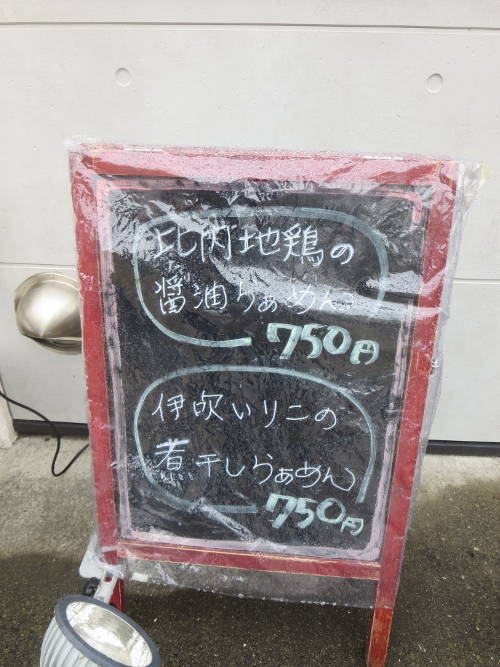 比内地鶏の
醤油らぁめん
750円
伊吹いりこの
煮干しらぁめん
750円